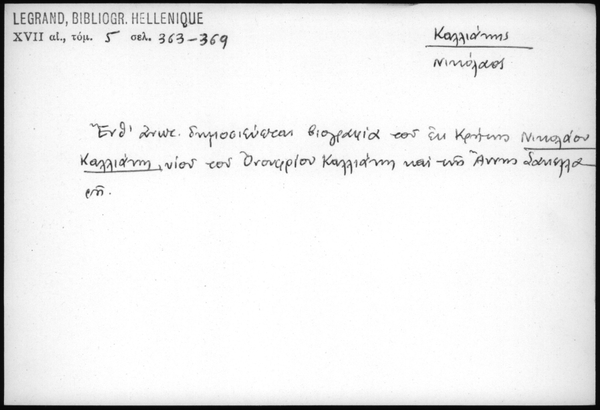 LEGRAND, BIBLIOGR. HELLENIQUE
XVII αἰ., τόμ. 5 σελ. 363-369
Καλλιάκης
Νικόλαος
Ἔνθ' ἀνωτ. δημοσιεύεται βιογραφία τοῦ ἐκ Κρήτης Νικολάου
Καλλιάκη, υἱοῦ τοῦ Ὀνουφρίου Καλλιάκη καὶ τῆς Ἄννης Σακελλα
ρῆ.